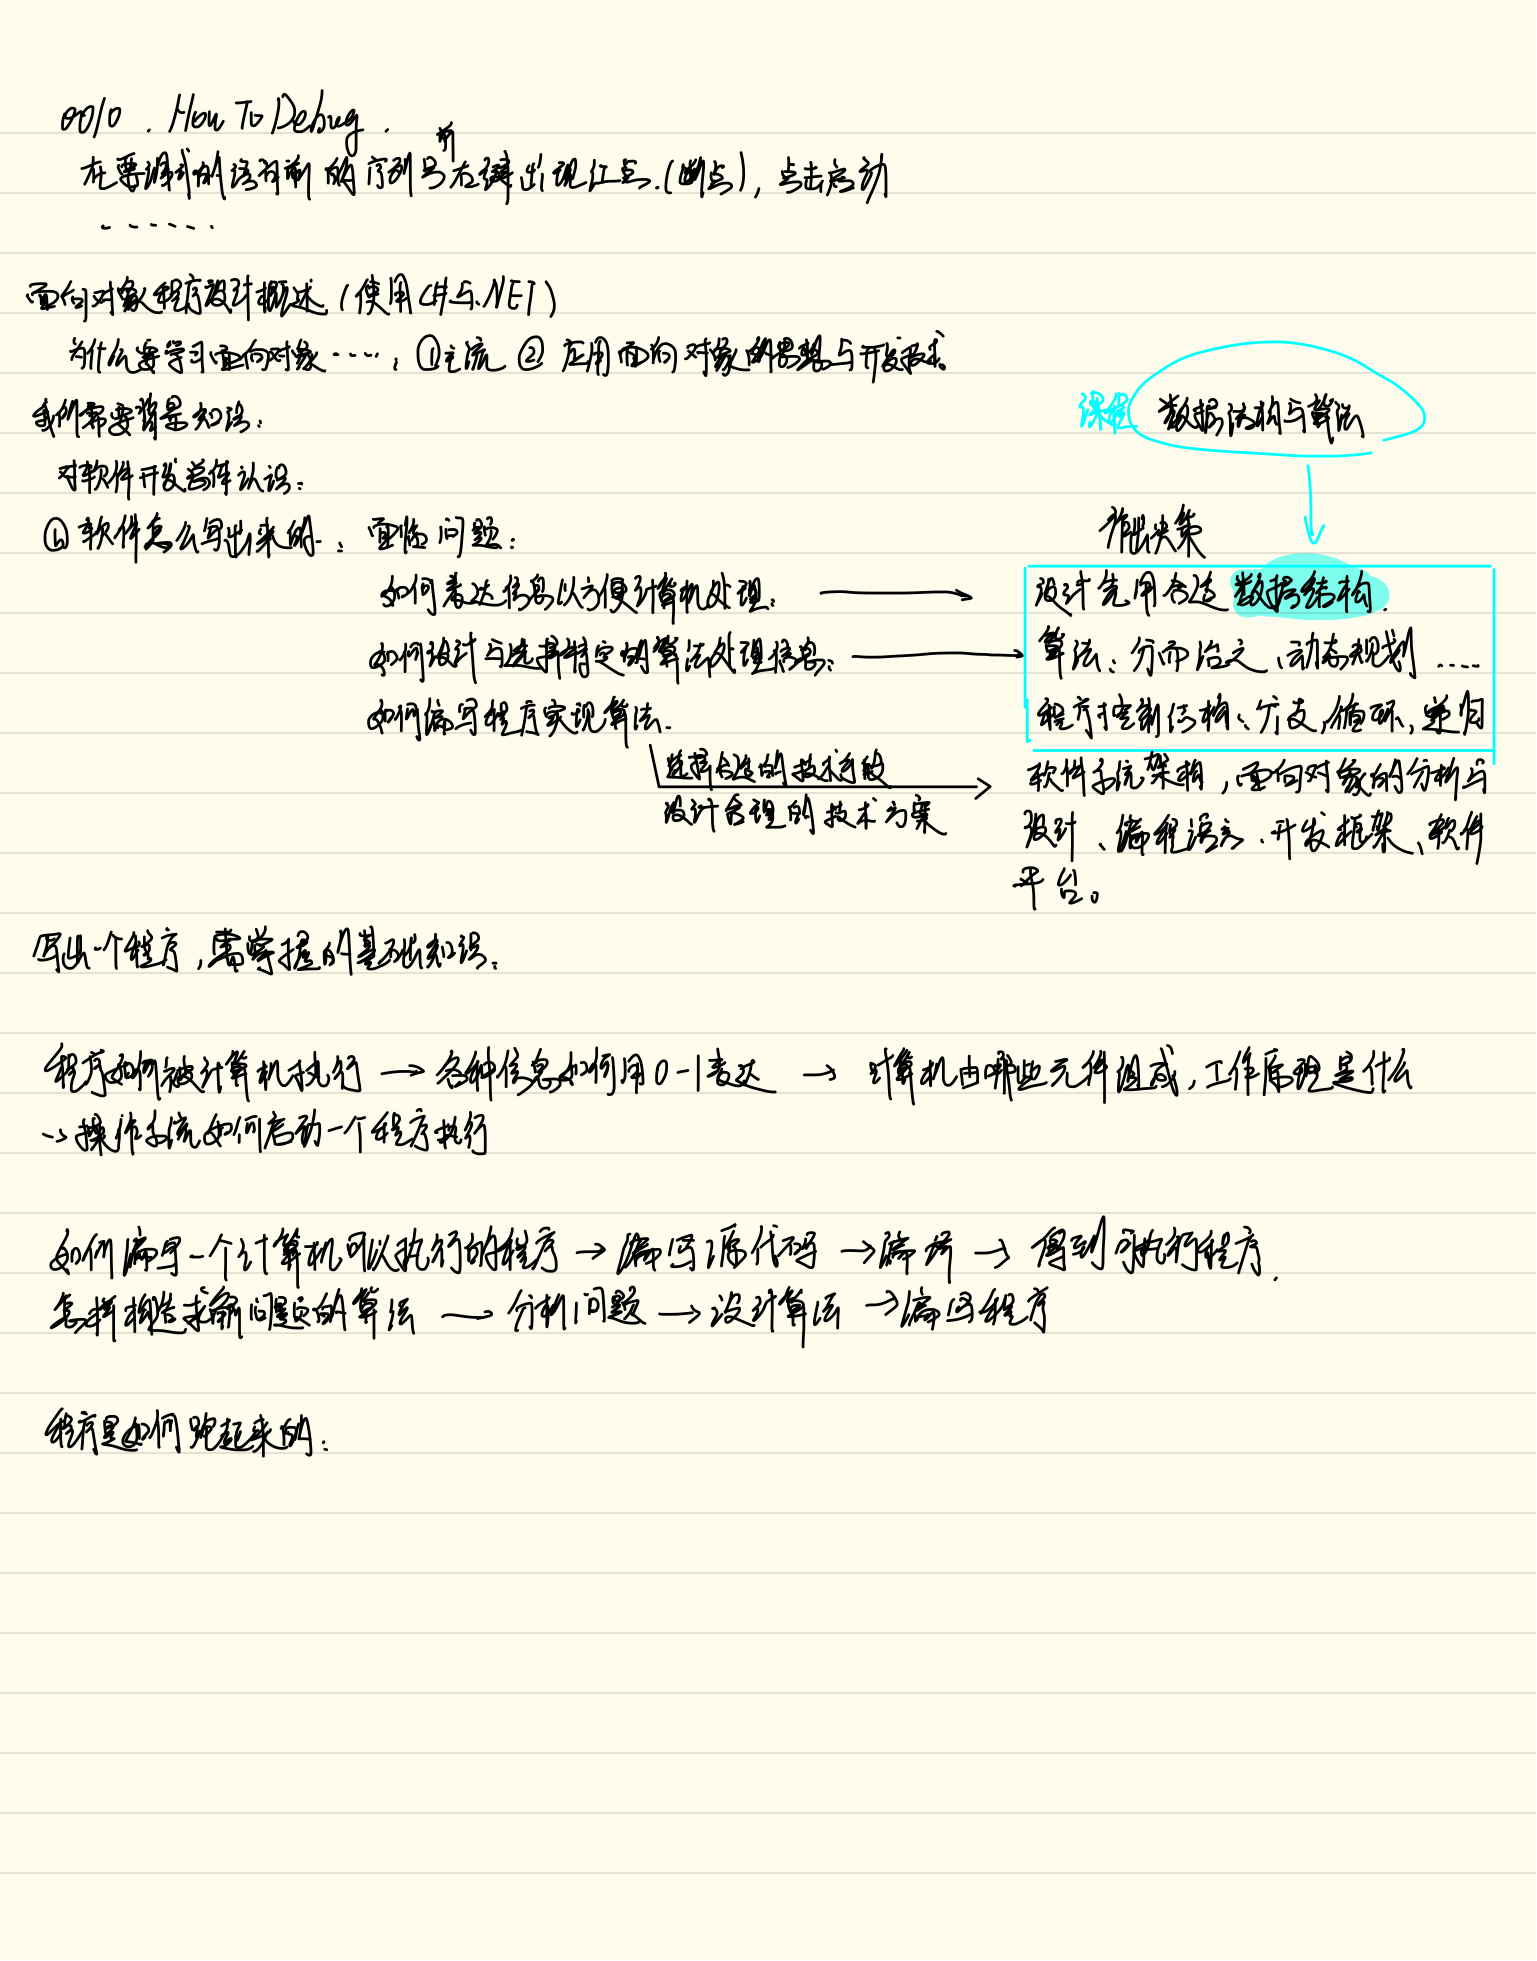 0010. How To Debug.
在要调试的语句前的序列号前右键出现红点.(断点), 点击启动
......
面向对象程序设计概述 (使用C#与.NET)
为什么要学习面向对象……: ①主流 ② 应用面向对象的思想与开发技术。
我们需要背景知识:
对软件开发总体认识:
软件怎么写出来的.: 面临问题:
如何表达信息以方便计算机处理:
如何设计与选择特定的算法处理信息:
如何编写程序实现算法.
选择合适的技术手段
设计合理的技术方案
课程 数据结构与算法
作出决策
设计 用合适数据结构.
算法: 分而治之、动态规划 ....
程序控制结构: 分支, 循环, 递归
软件系统架构, 面向对象的分析与
设计、编程语言、开发框架、软件
平台。
写出一个程序, 需掌握的基础知识:
程序如何被计算机执行 → 各种信息如何用0-1表达 → 计算机由哪些元件组成, 工作原理是什么
→ 操作系统如何启动一个程序执行
如何编写一个计算机可以执行的程序 → 编写源代码 → 编译 → 得到可执行程序.
怎样构造求解问题的算法 → 分析问题 → 设计算法 → 编写程序
程序是如何跑起来的: